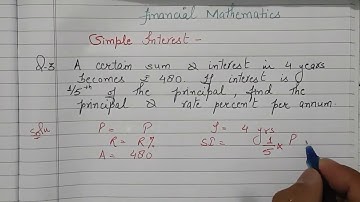 Financial Mathematics
Simple Interest -
Q.3 A certain sum & interest in 4 years
becomes ₹ 480. If interest is
1/5th of the principal, find the
principal & rate percent per annum.
Solu P = P T = 4 yrs
R = R% SI = 1/5 × P
A = 480